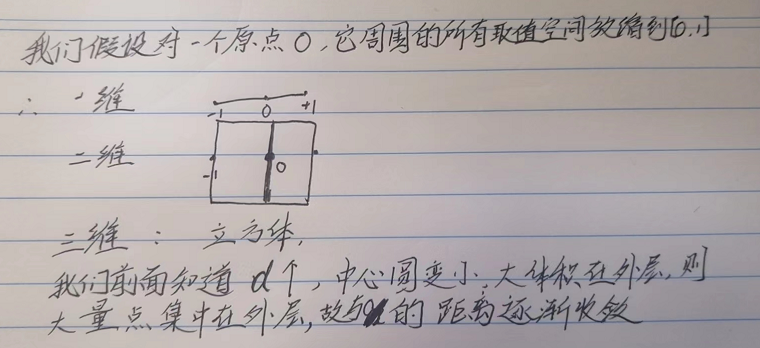 我们假设对一个原点O,它周围的所有取值空间放缩到[0,1]
∴ 一维
-1 0 +1
二维
-1 0
三维: 立方体,
我们前面知道 d↑, 中心圆变小, 大体积在外层, 则
大量点集中在外层, 故与 的距离逐渐收敛